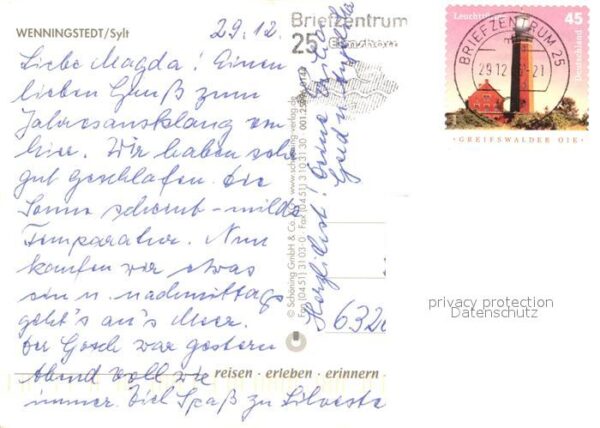 WENNINGSTEDT/Sylt
29.12.
Liebe Magda! Einen
lieben Gruß zum
Jahresausklang von
hier. Wir haben sehr
gut geschlafen. Die
Sonne scheint - milde
Temparatur. Nun
kaufen wir etwas
ein u. nachmittags
geht's an's Meer.
Der Gosch war gestern
Abend voll wie
immer. Viel Spaß zu Silvester
Herzlichst! Deine Erika
Gerd u. Angela
© Schöning GmbH & Co.
Fax (0451) 3103-0 · Fax (0451) 3103130
www.schoening-verlag.de
reisen · erleben · erinnern
Briefzentrum
25
BRIEFZENTRUM 25
29.12.
-21
Leuchtt
45
Deutschland
GREIFSWALDER OIE
632
privacy protection
Datenschutz